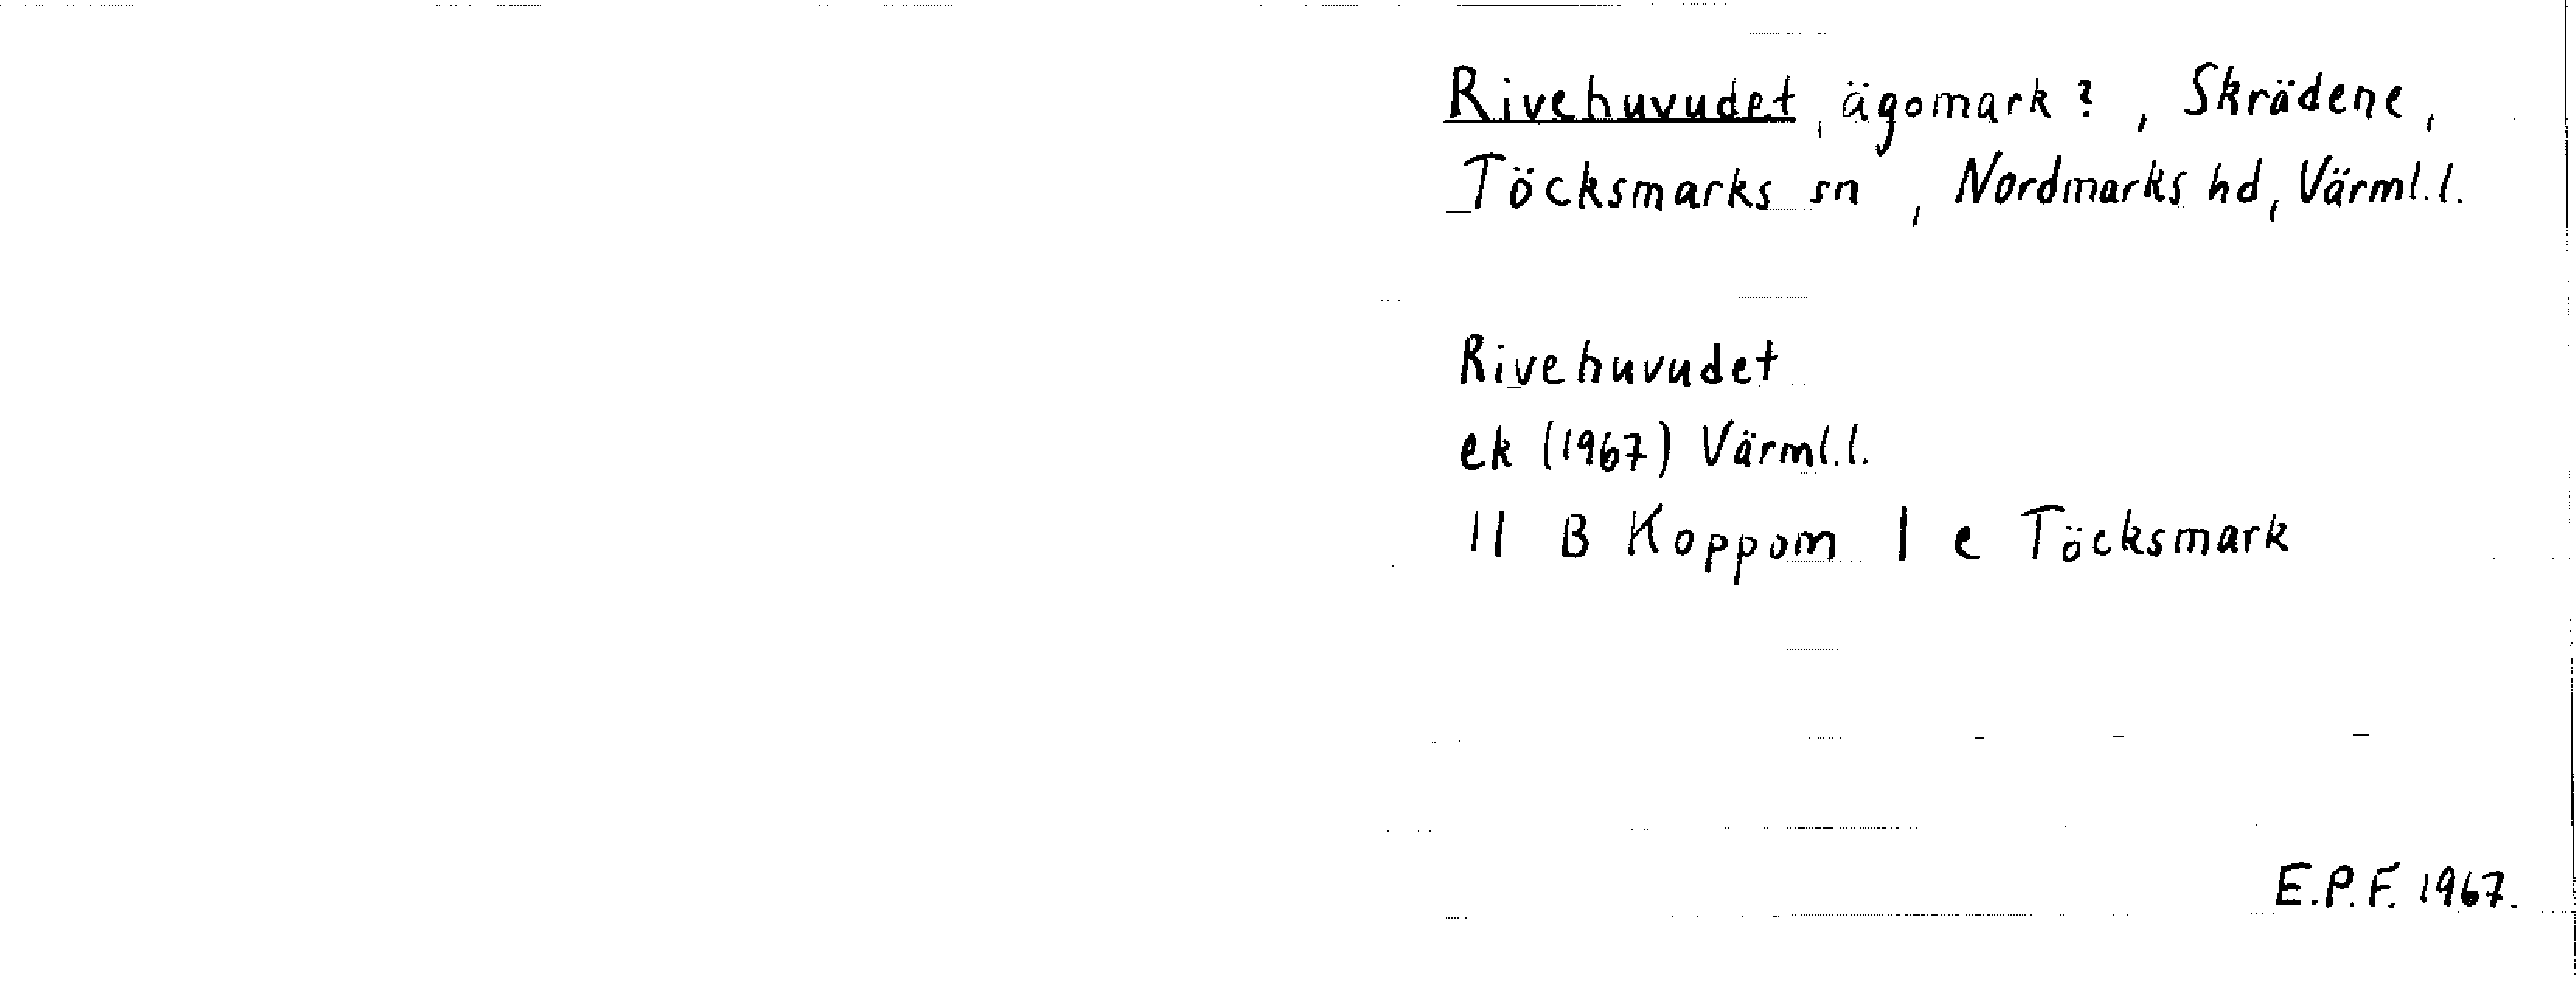 Rivehuvudet, ägomark?, Skrädene,
Töcksmarks sn, Nordmarks hd, Värml.l.
Rivehuvudet
ek (1967) Värml.l.
11 B Koppom 1 e Töcksmark
E.P.F. 1967.